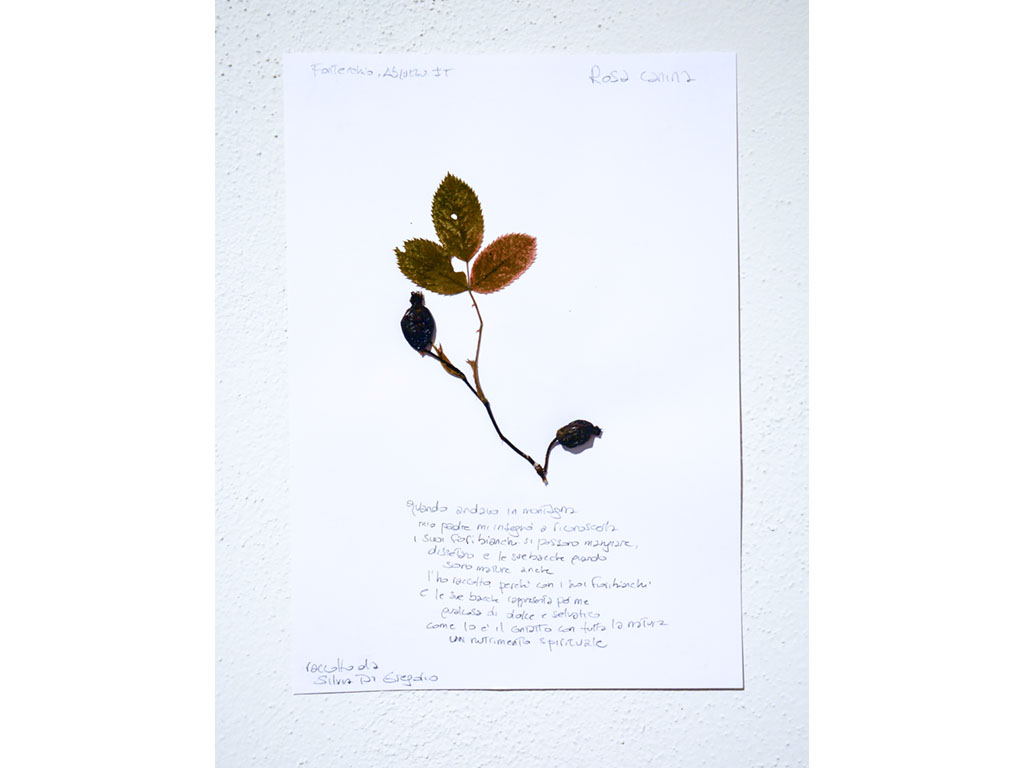 Fontecchio, Abruzzo IT
Rosa canina
Quando andavo in montagna
mio padre mi insegnò a riconoscerla
i suoi fiori bianchi si possono mangiare,
dissetano e le sue bacche quando
sono mature anche
l'ho raccolta perchè con i suoi fiori bianchi
e le sue bacche rappresenta per me
qualcosa di dolce e selvatico
come lo e' il contatto con tutta la natura
un nutrimento spirituale
raccolto da
Silvia Di Gregorio